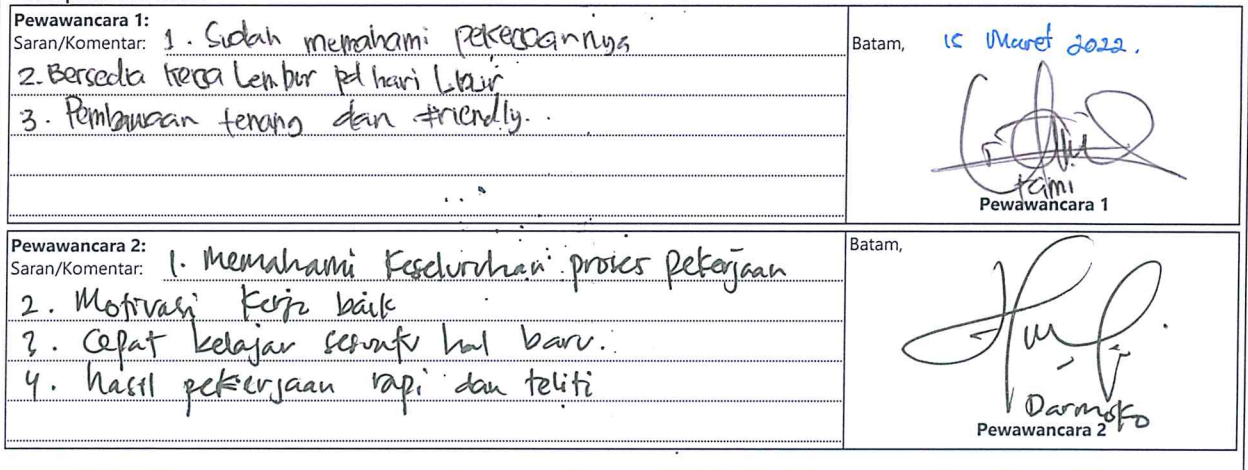 Pewawancara 1:
Saran/Komentar: 1. Sudah memahami pekerjaannya
2. Bersedia kerja Lembur pd hari Libur
3. Pembawaan tenang dan friendly.
Batam, 15 Maret 2022.
tami
Pewawancara 1
Pewawancara 2:
Saran/Komentar: 1. Memahami Keseluruhan proses pekerjaan
2. Motivasi Kerja baik
3. Cepat belajar sesuatu hal baru.
4. hasil pekerjaan rapi dan teliti
Batam,
Darmoko
Pewawancara 2